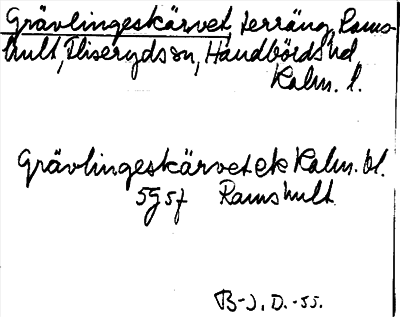 Grävlingeskärvet, terräng, Rams-
hult, Fliseryds sn, Handbörds hd,
Kalm. l.
Grävlingeskärvet ek Kalm. bl.
5g5f Ramshult
B-J. D. -55.